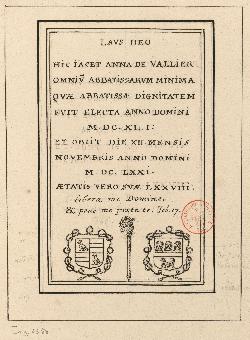 LAVS DEO
HIC IACET ANNA DE VALLIER
OMNIṼ ABBATISSARVM MINIMA
QVÆ ABBATISSÆ DIGNITATEM
FVIT ELECTA ANNO DOMINI
M. DC. XL. I.
ET OBIIT DIE XII. MENSIS
NOVEMBRIS ANNO DOMINI
M. DC. LXXI.
ÆTATIS VERO SVÆ LXXVIII.
libera me Domine
& pone me juxta te. Job. 17.